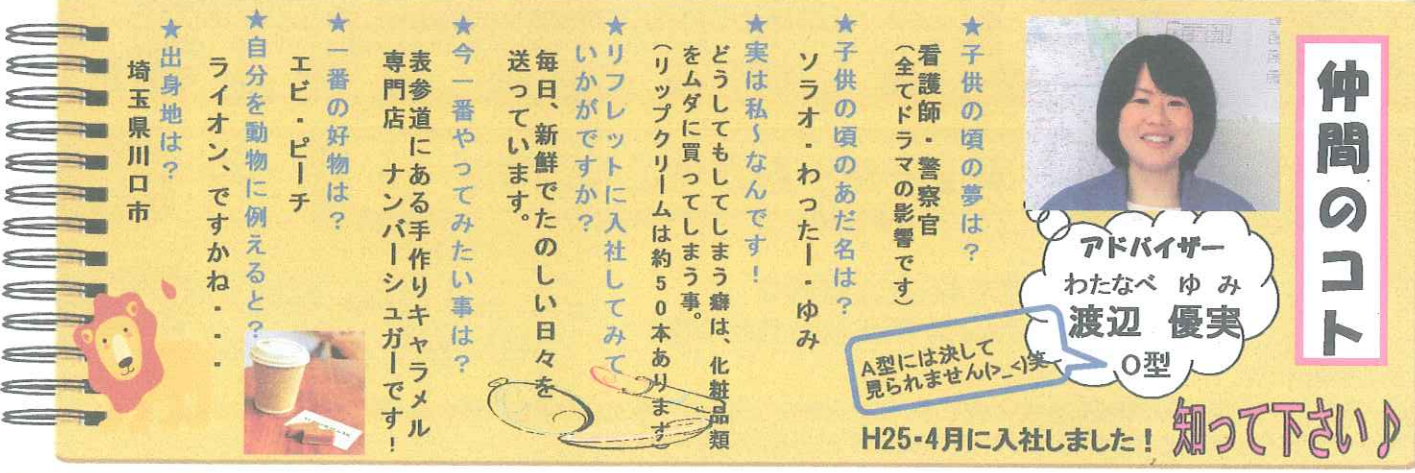 仲間のコト
知って下さい♪
アドバイザー
わたなべ ゆ み
渡辺 優実
O型
A型には決して
見られません(>_<)笑
H25・4月に入社しました！
★子供の頃の夢は？
看護師・警察官
（全てドラマの影響です）
★子供の頃のあだ名は？
ソラオ・わったー・ゆみ
★実は私～なんです！
どうしてもしてしまう癖は、化粧品類
をムダに買ってしまう事。
（リップクリームは約50本あります）
★リフレットに入社してみて
いかがですか？
毎日、新鮮でたのしい日々を
送っています。
★今一番やってみたい事は？
表参道にある手作りキャラメル
専門店 ナンバーシュガーです！
★一番の好物は？
エビ・ピーチ
★自分を動物に例えると？
ライオン、ですかね・・・
★出身地は？
埼玉県川口市